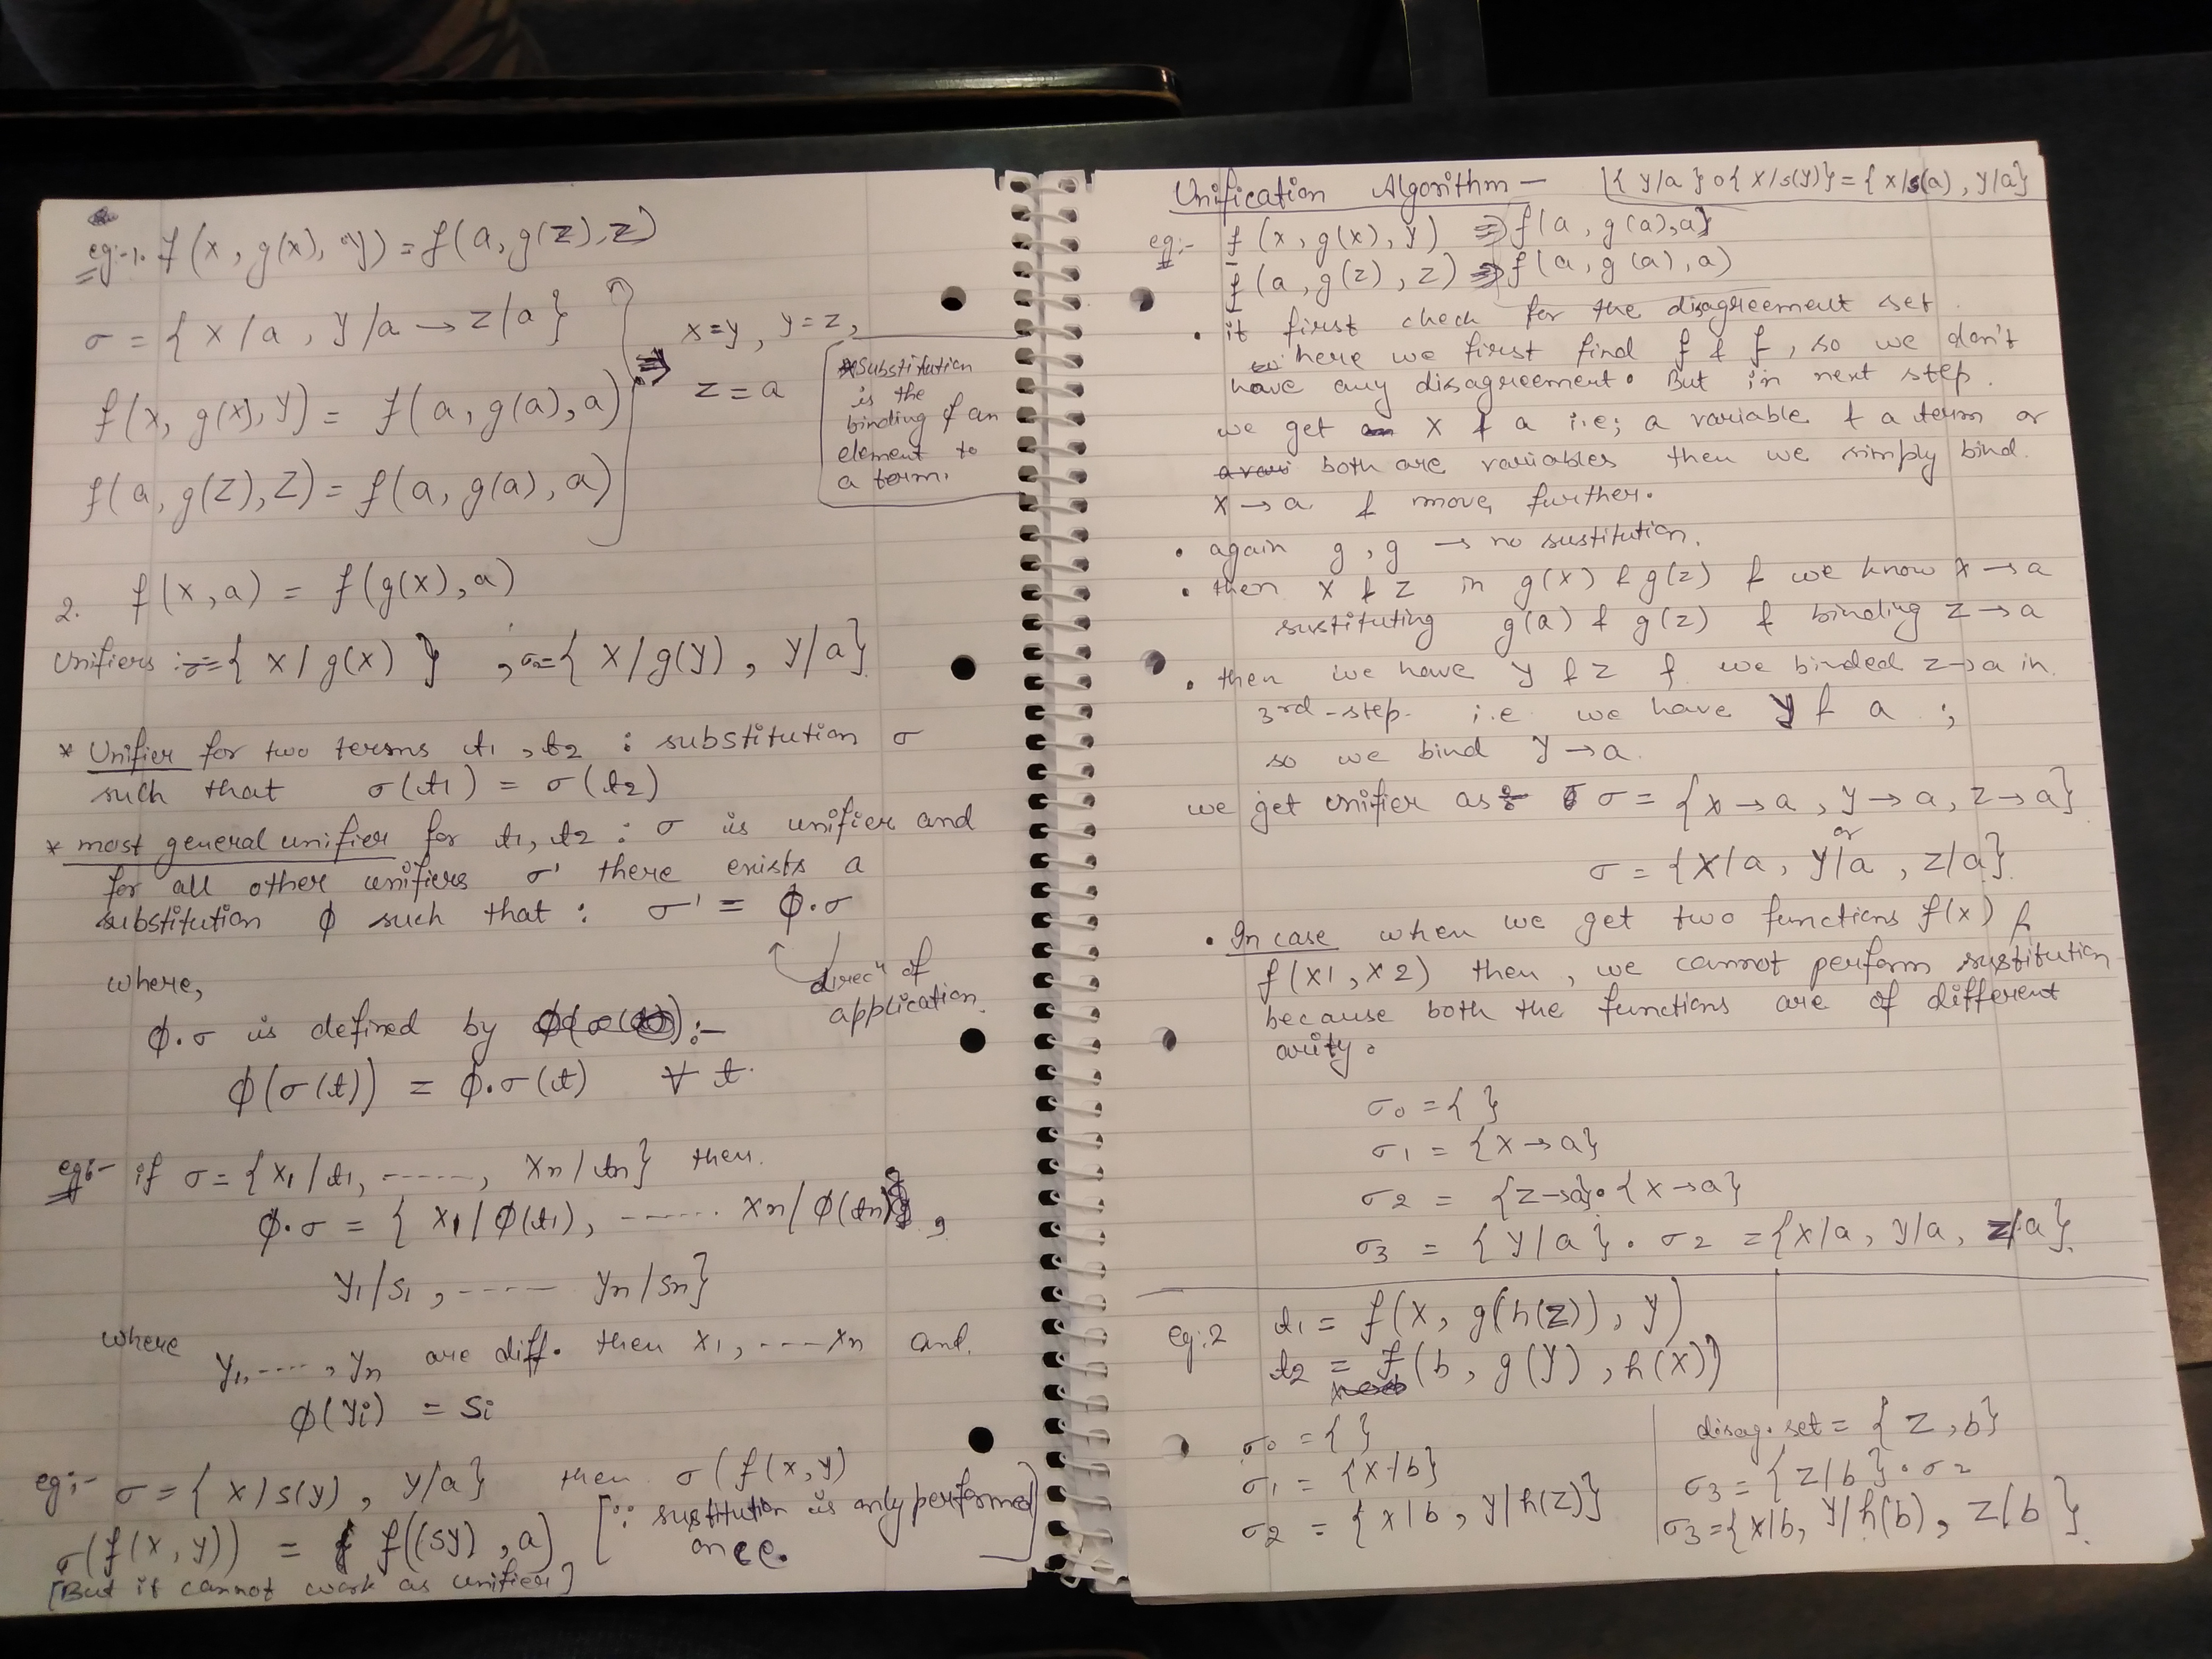 eg:-1. f(x, g(x), y) = f(a, g(z), z)
σ = { x/a , y/a → z/a }
f(x, g(x), y) = f(a, g(a), a)
f(a, g(z), z) = f(a, g(a), a)
⇒ x=y, y=z,
z = a
*Substitution
is the
binding of an
element to
a term.
2. f(x, a) = f(g(x), a)
Unifiers := { x / g(x) } , σ2={ x/g(y) , y/a }
* Unifier for two terms t1, t2 : substitution σ
such that σ(t1) = σ(t2)
* most general unifier for t1, t2 : σ is unifier and
for all other unifiers σ' there exists a
substitution ϕ such that : σ' = ϕ·σ
direcⁿ of
application.
where,
ϕ·σ is defined by :-
ϕ(σ(t)) = ϕ·σ(t) ∀ t.
eg:- if σ = { x1/t1, -----, xn/tn} then.
ϕ·σ = { x1/ϕ(t1), ------ xn/ϕ(tn) ,
y1/s1 , ---- yn/sn}
where y1, ----, yn are diff. then x1, ---- xn and.
ϕ(yi) = si
eg:- σ = { x/s(y) , y/a} then σ(f(x,y)
σ(f(x, y)) = f((sy) , a) [∵ sustitution is only performed
once. ]
[But it cannot work as unifier]
Unification Algorithm — {{ y/a } o { x/s(y)} = { x/s(a) , y/a}
eg:- f (x, g(x), y) ⇒ f(a, g(a), a}
f (a, g(z), z) ⇒ f(a, g(a), a)
• it first check for the disagreement set.
here we first find f & f, so we don't
have any disagreement. But in next step.
we get x & a i.e; a variable & a term or
both are variables then we simply bind.
x → a & move further.
• again g, g → no sustitution.
• then x & z in g(x) & g(z) & we know x → a
sustituting g(a) & g(z) & binding z → a
• then we have y & z & we binded z → a in
3rd-step. i.e we have y & a ;
so we bind y → a.
we get unifier as σ = {x → a, y → a, z → a}
or
σ = {x/a, y/a , z/a}
• In case when we get two functions f(x) &
f(x1, x2) then, we cannot perform sustitution
because both the functions are of different
arity.
σ0 = { }
σ1 = {x → a}
σ2 = {z → a}∘{x → a}
σ3 = {y/a}·σ2 = {x/a, y/a, z/a}.
eg:2 t1 = f(x, g(h(z)), y)
t2 = f(b, g(y), h(x))
σ0 = { }
σ1 = {x/b}
σ2 = {x/b, y/h(z)}
disag. set = { z, b}
σ3 = {z/b}·σ2
σ3 = {x/b, y/h(b), z/b}.